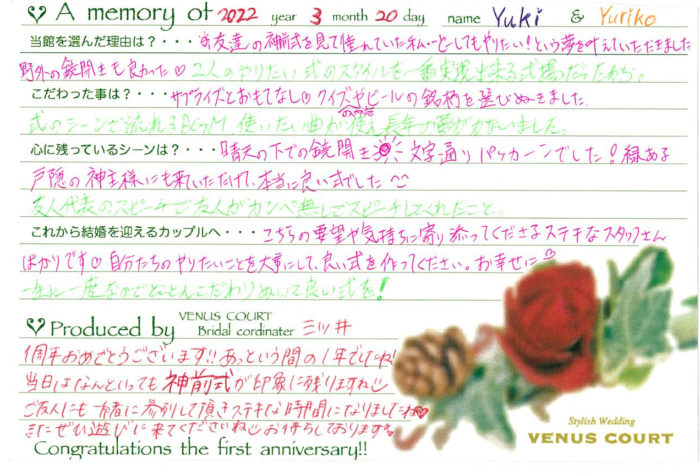 A memory of 2022 year 3 month 20 day name Yuki & Yuriko
当館を選んだ理由は？・・・お友達の神前式を見て憧れていた私…どーしてもやりたい！という夢を叶えていただきました
野外の鏡開きも良かった♡ 2人のやりたい式のスタイルを一番実現出来る式場だったから。
こだわった事は？・・・サプライズとおもてなし♡クイズやビールの銘柄を選びぬきました。
式のシーンで流れるBGM 使いたい曲が使え長年の夢がかないました。
心に残っているシーンは？・・・晴天の下での鏡開き 文字通りパッカーンでした！縁ある
戸隠の神主様にも来ていただけて、本当に良い式でした^^
友人代表のスピーチで友人がカンペ無しでスピーチしてくれたこと。
これから結婚を迎えるカップルへ・・・こちらの要望や気持ちに寄り添ってくださるステキなスタッフさん
ばかりです♡自分たちのやりたいことを大事にして、良い式を作ってください。お幸せに
一生に一度なのでとことんこだわりぬいて良い式を！
Produced by VENUS COURT Bridal cordinater 三ツ井
1周年おめでとうございます!!あっという間の1年でしたね!
当日はなんといっても神前式が印象に残りますね
ご友人にも一緒に参列して頂きステキな時間になりましたね♡
またぜひ遊びに来てくださいね お待ちしております
Congratulations the first anniversary!!
Stylish Wedding
VENUS COURT